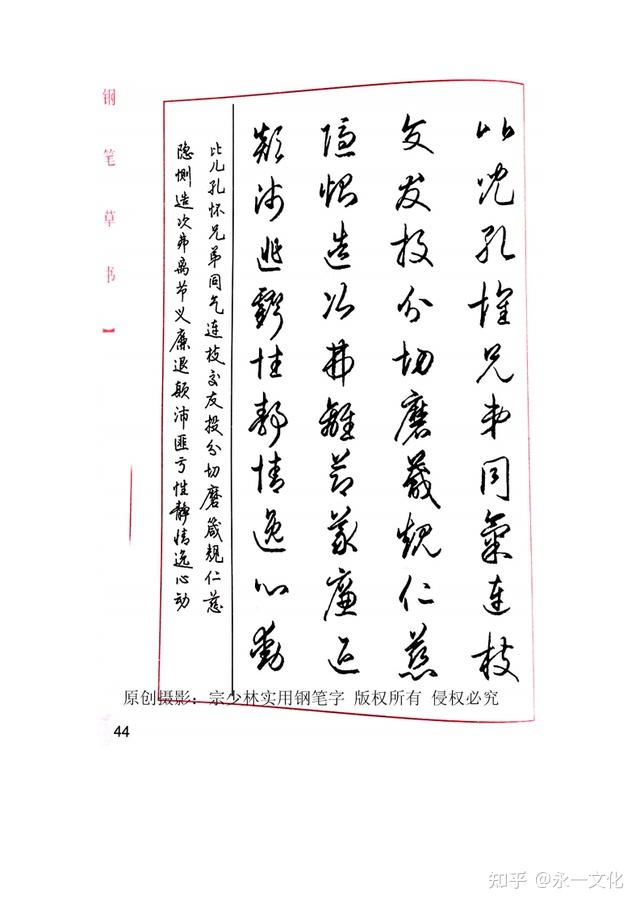 比兒孔懷兄弟同氣連枝
交友投分切磨箴規仁慈
隱惻造次弗離節義廉退
顛沛匪虧性靜情逸心動
比儿孔怀兄弟同气连枝交友投分切磨箴规仁慈
隐恻造次弗离节义廉退颠沛匪亏性静情逸心动
钢笔草书】
原创摄影：宗少林实用钢笔字 版权所有 侵权必究
44
知乎 @永一文化